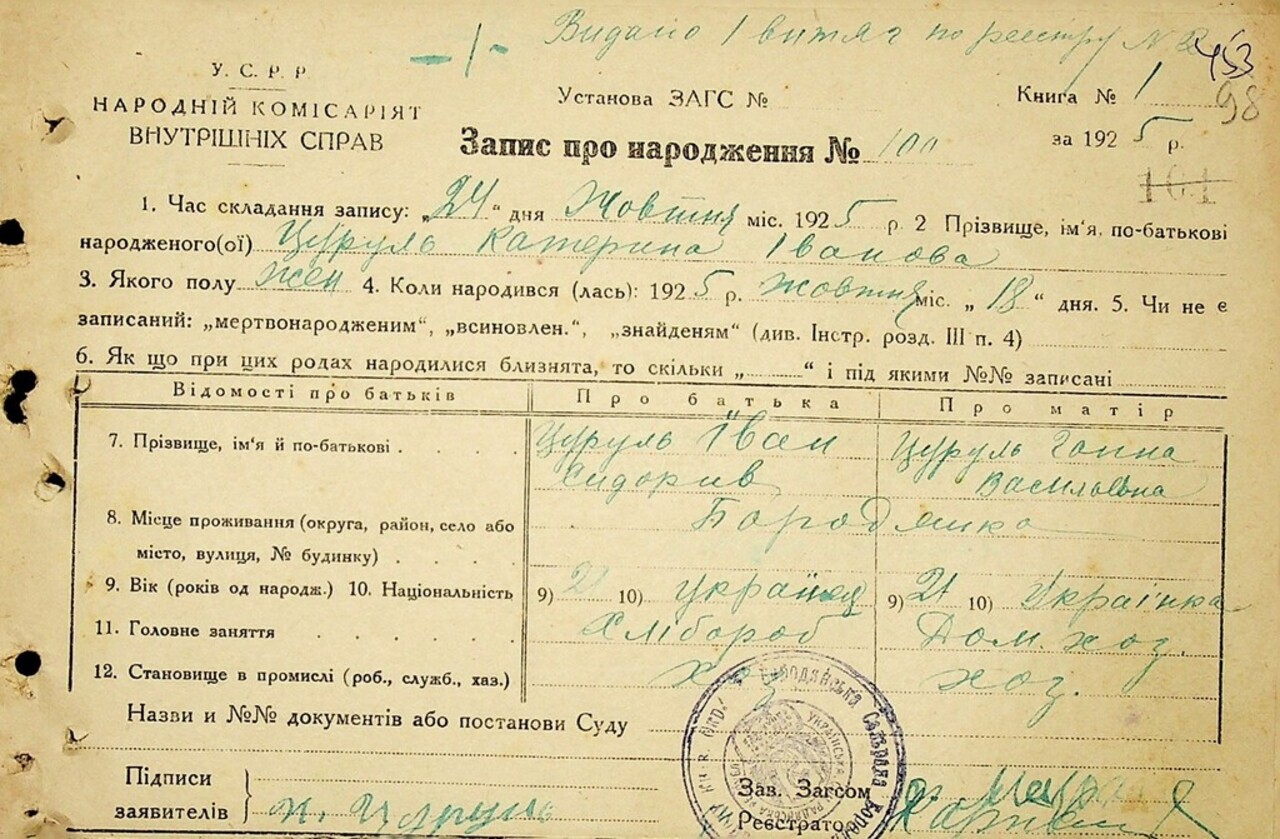 Видано 1 витяг по реєстру № 2
453
У. С. Р. Р.
НАРОДНІЙ КОМІСАРІЯТ
ВНУТРІШНІХ СПРАВ
Установа ЗАГС №
Книга № 1
98
Запис про народження № 100
за 1925 р.
101
1. Час складання запису: „24“ дня Жовтня міс. 1925 р. 2 Прізвище, ім'я, по-батькові
народженого(ої) Цуруль Катерина Іванова
3. Якого полу жен 4. Коли народився (лась): 1925 р. жовтня міс. „18“ дня. 5. Чи не є
записаний: „мертвонародженим“, „всиновлен.“, „знайденям“ (див. Інстр. розд. III п. 4)
6. Як що при цих родах народилися близнята, то скільки „ “ і під якими №№ записані
Відомості про батьків Про батька Про матір
7. Прізвище, ім'я й по-батькові Цуруль Іван Цуруль Ганна
Сидорів Васильовна
8. Місце проживання (округа, район, село або Бородянка
місто, вулиця, № будинку)
9. Вік (років од народж.) 10. Національність 9) 10) українец 9) 21 10) Українка
11. Головне заняття Хлібороб Дом. хоз.
12. Становище в промислі (роб., служб., хаз.) хоз. хоз.
Назви и №№ документів або постанови Суду
Підписи
заявителів
Цуруль
Зав. Загсом
Реєстратор
Бородянська Сільрада